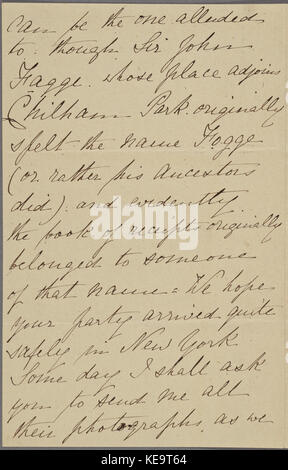 can be the one alluded
to, though Sir John
Fagge, whose place adjoins
Chilham Park, originally
spelt the name Fogge
(or rather his Ancestors
did), and evidently
the book of receipts originally
belonged to someone
of that name = We hope
your party arrived quite
safely in New York
Some day I shall ask
you to send me all
their photographs, as we
alamy
Image ID: KE9T64
www.alamy.com